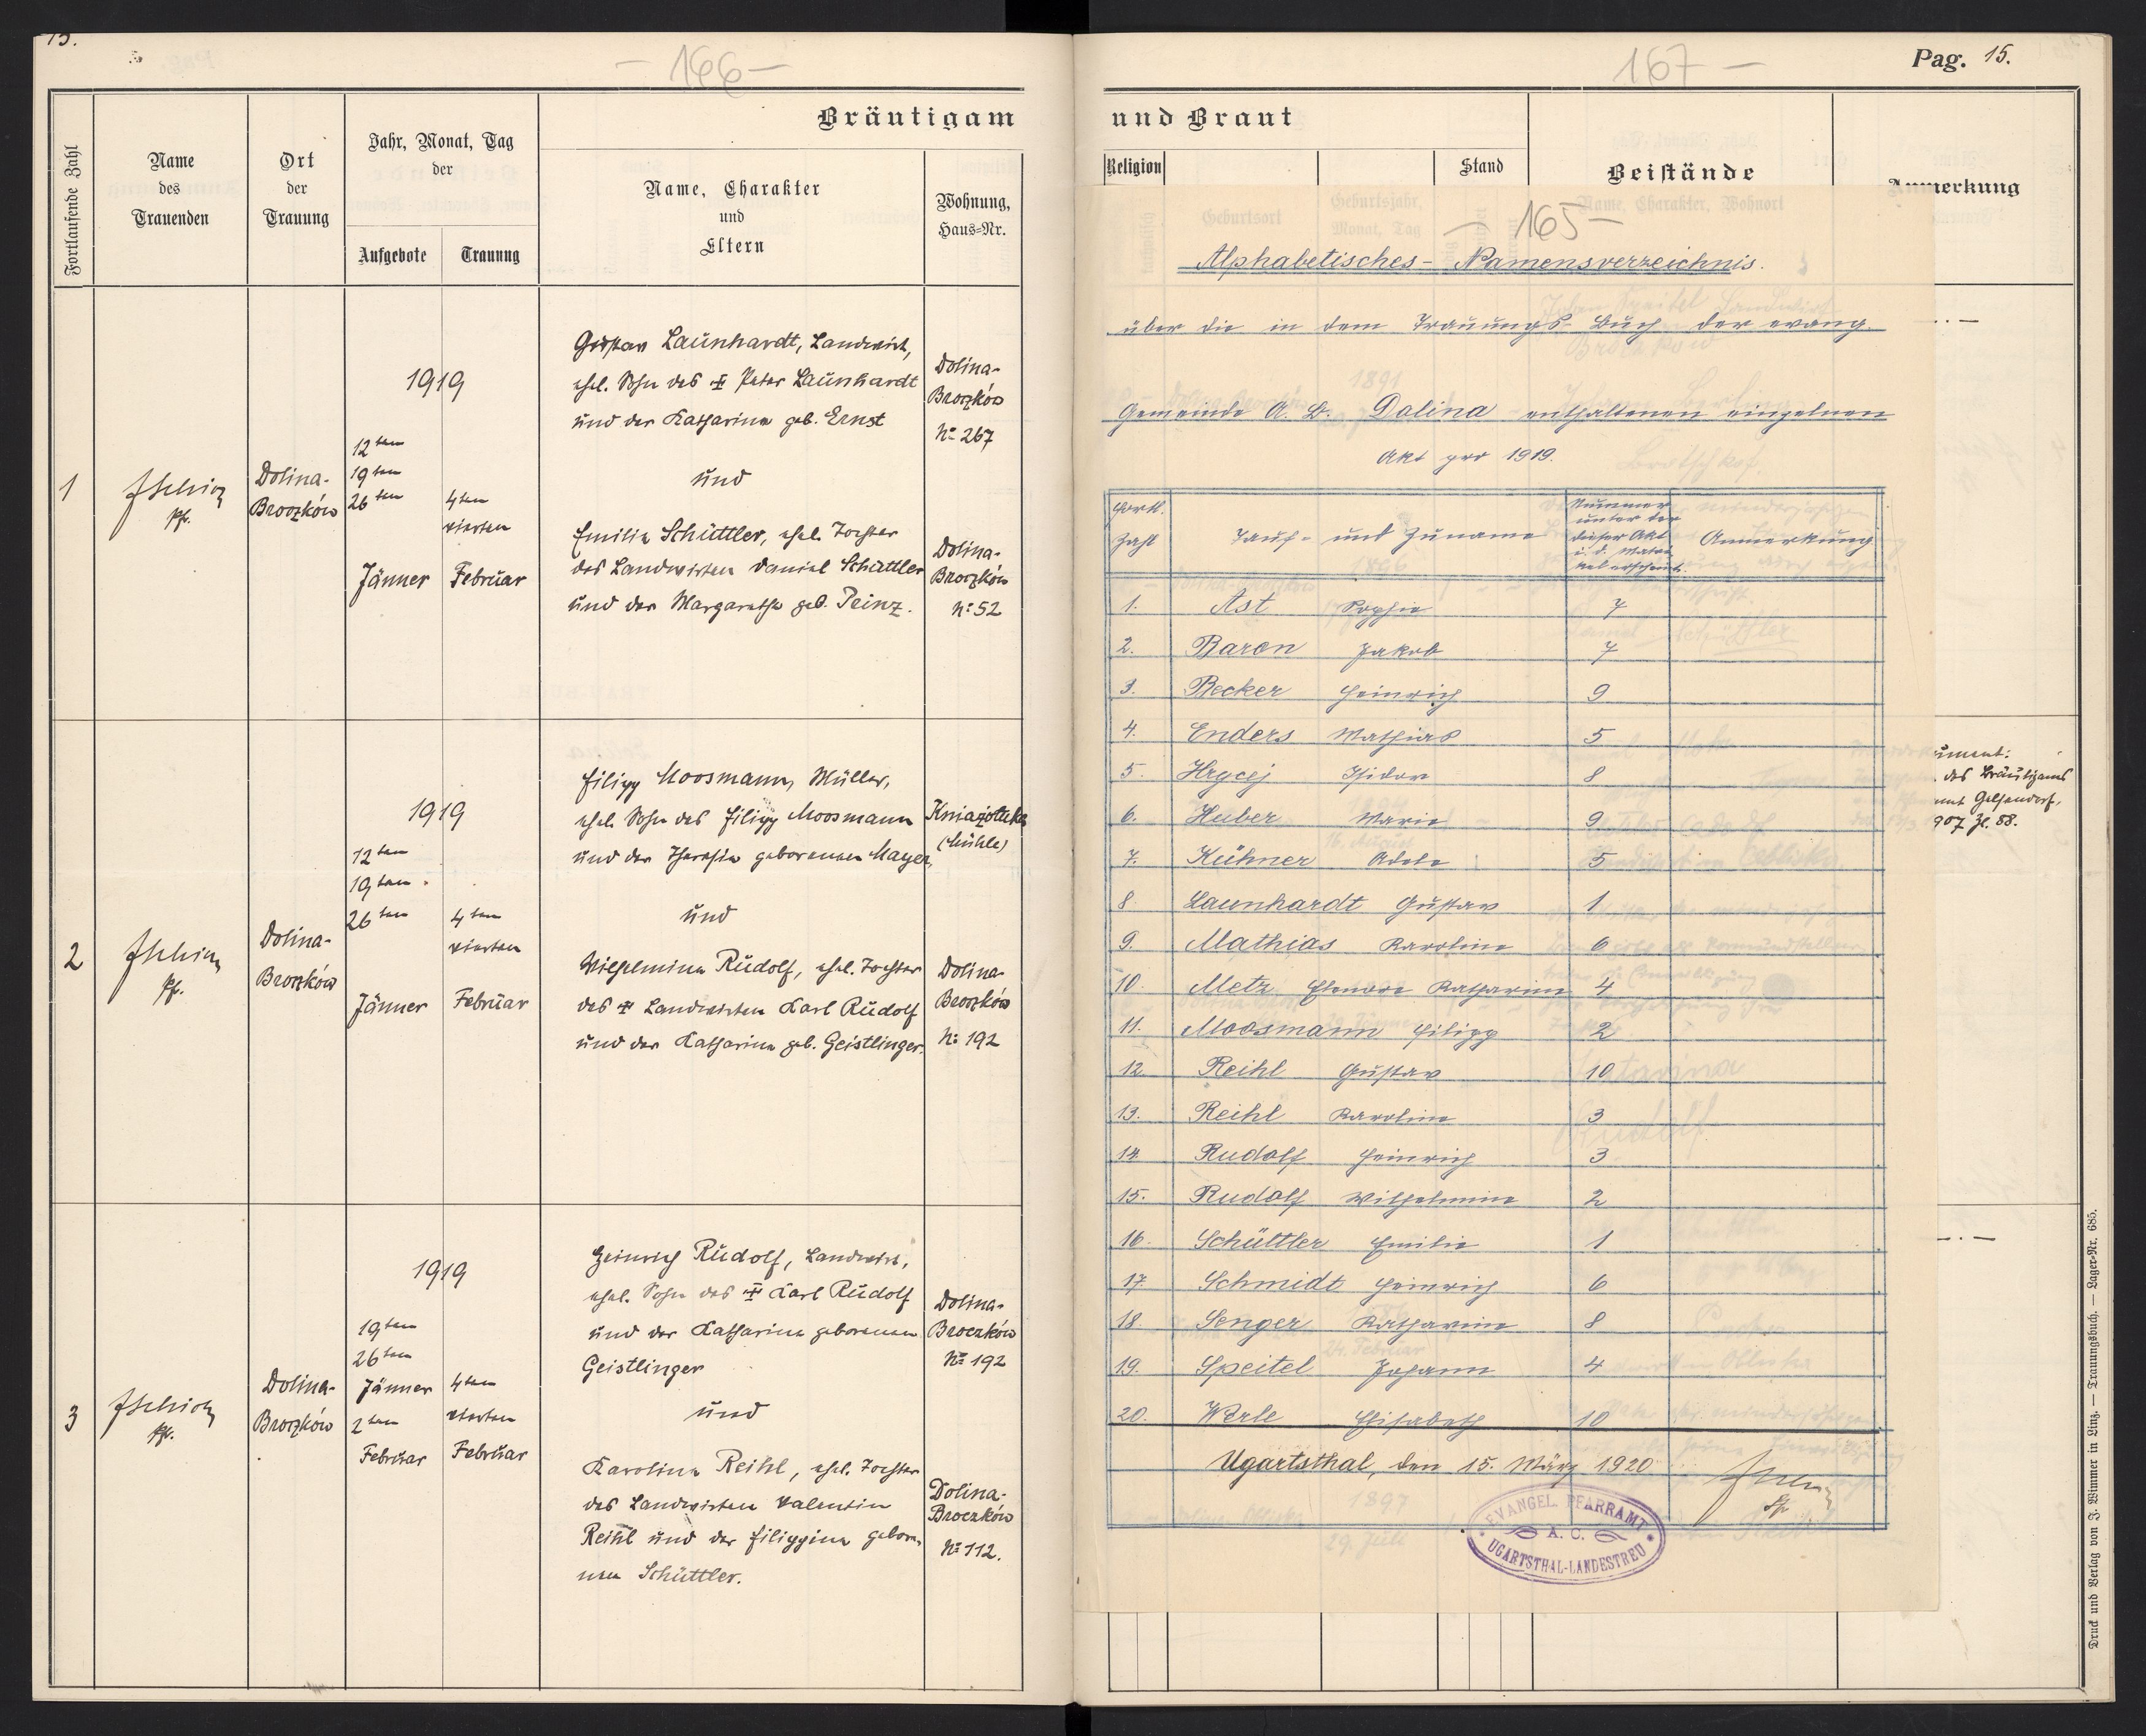 15.
- 166 -
Bräutigam
Fortlaufende Zahl
Name
des
Trauenden
Ort
der
Trauung
Jahr, Monat, Tag
der
Aufgebote
Trauung
Name, Charakter
und
Eltern
Wohnung,
Haus-Nr.
1
Pfr.
Dolina-
Broczków
1919
12ten
19ten
26ten
Jänner
4ten
vierten
Februar
Gustav Launhardt, Landwirt,
ehel. Sohn des ‡ Peter Launhardt
und der Katharina geb. Ernst
und
Emilie Schüttler, ehel. Tochter
des Landwirten Daniel Schüttler
und der Margarethe geb. Peinz.
Dolina-
Broczków
No 267
Dolina-
Broczków
No 52
2
Pfr.
Dolina-
Broczków
1919
12ten
19ten
26ten
Jänner
4ten
vierten
Februar
Filipp Moosmann, Müller,
ehel. Sohn des Filipp Moosmann
und der Theresia geborenen Mayer,
und
Wilhelmine Rudolf, ehel. Tochter
des ‡ Landwirten Karl Rudolf
und der Katharina geb. Geistlinger.
Kniaźołuka
(Mühle)
Dolina-
Broczków
No 192
3
Pfr.
Dolina-
Broczków
1919
19ten
26ten
Jänner
2ten
Februar
4ten
vierten
Februar
Heinrich Rudolf, Landwirt,
ehel. Sohn des ‡ Karl Rudolf
und der Katharina geborenen
Geistlinger
und
Karolina Reihl, ehel. Tochter
des Landwirten Valentin
Reihl und der Filippina gebore-
nen Schüttler.
Dolina-
Broczków
No 192
Dolina-
Broczków
No 112.
167 -
Pag. 15.
und Braut
Religion
Stand
Beistände
Anmerkung
- 165 -
Alphabetisches - Namensverzeichnis.
über die in dem Trauungs-Buch der evang.
Gemeinde A. B. Dolina enthaltenen einzelnen
Akt pro 1919.
Fortl. Zahl
Tauf- und Zuname
Nummer
unter der
dieser Akt
i. d. Matri-
kel erscheint.
Anmerkung
1. Ast Sophie 7
2. Baron Jakob 7
3. Becker Heinrich 9
4. Enders Mathias 5
5. Hrycej Isidor 8
6. Huber Marie 9
7. Kühner Adele 5
8. Launhardt Gustav 1
9. Mathias Karoline 6
10. Metz Eleonore Katharina 4
11. Moosmann Filipp 2
12. Reihl Gustav 10
13. Reihl Karoline 3
14. Rudolf Heinrich 3
15. Rudolf Wilhelmine 2
16. Schüttler Emilie 1
17. Schmidt Heinrich 6
18. Senger Katharina 8
19. Speitel Johann 4
20. Werle Elisabeth 10
Ugartsthal, den 15. März 1920
EVANGEL. PFARRAMT
A. C.
UGARTSTHAL-LANDESTREU
ument:
des Bräutigams
amt Gelsendorf,
907 Zl. 88.
Druck und Verlag von J. Wimmer in Linz. — Trauungsbuch. — Lager-Nr. 685.